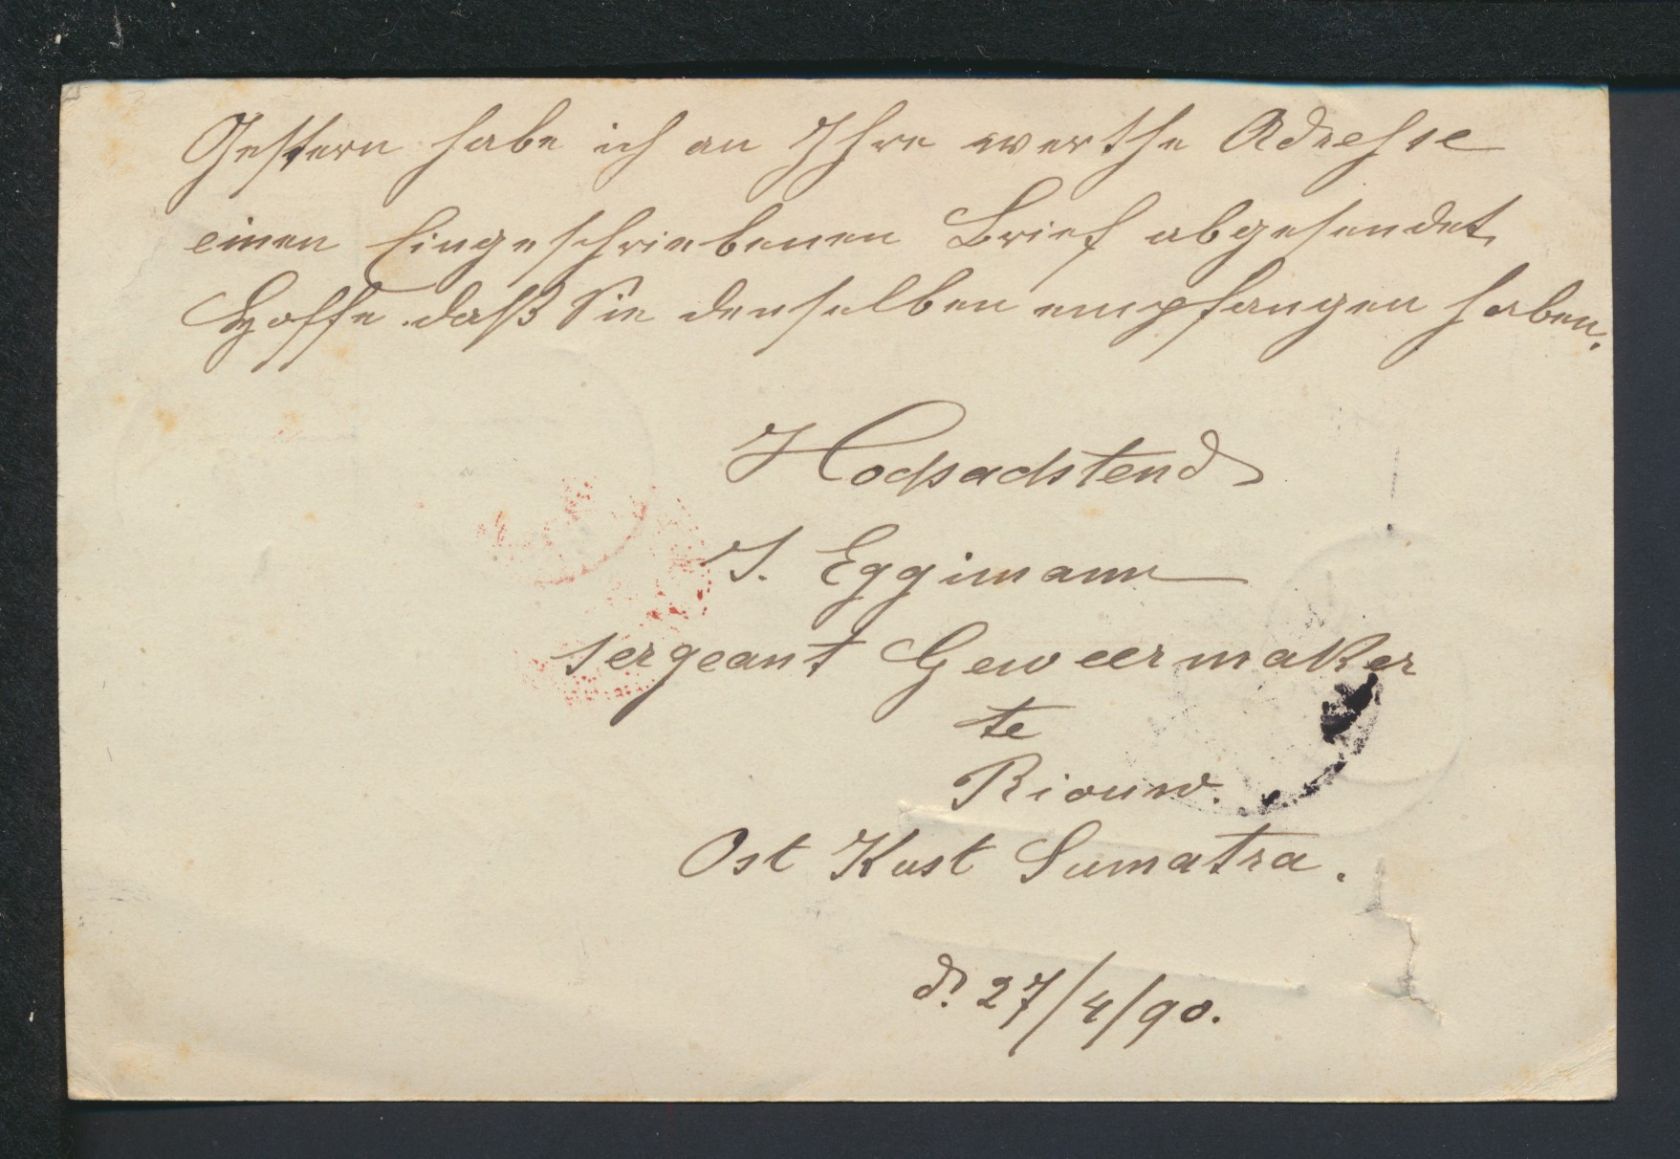 Gestern habe ich an Ihre werthe Adresse
einen Eingeschriebenen Brief abgesendet,
Hoffe daß Sie denselben empfangen haben.
Hochachstend
J. Eggimann
sergeant Geweermaker
te
Riouw.
Ost Kust Sumatra.
d. 27/4/90.